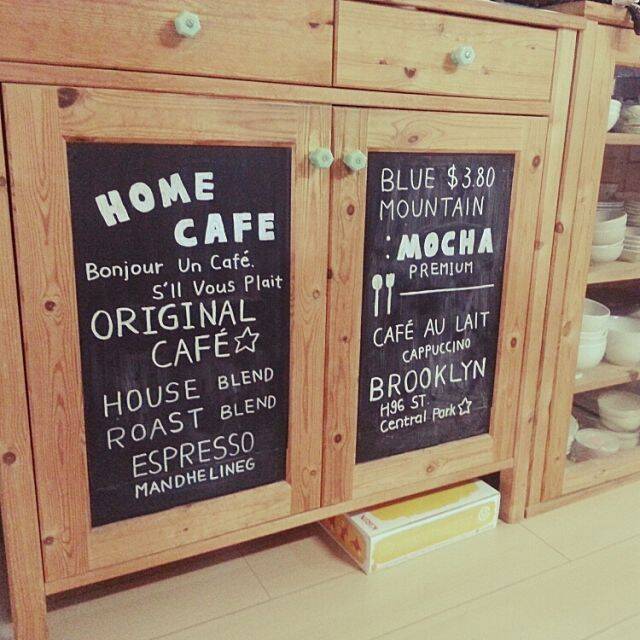 HOME
CAFE
Bonjour Un Café.
S'Il Vous Plait
ORIGINAL
CAFÉ☆
HOUSE BLEND
ROAST BLEND
ESPRESSO
MANDHELINEG
BLUE $3.80
MOUNTAIN
:MOCHA
PREMIUM
CAFÉ AU LAIT
CAPPUCCINO
BROOKLYN
H96 ST.
Central Park☆